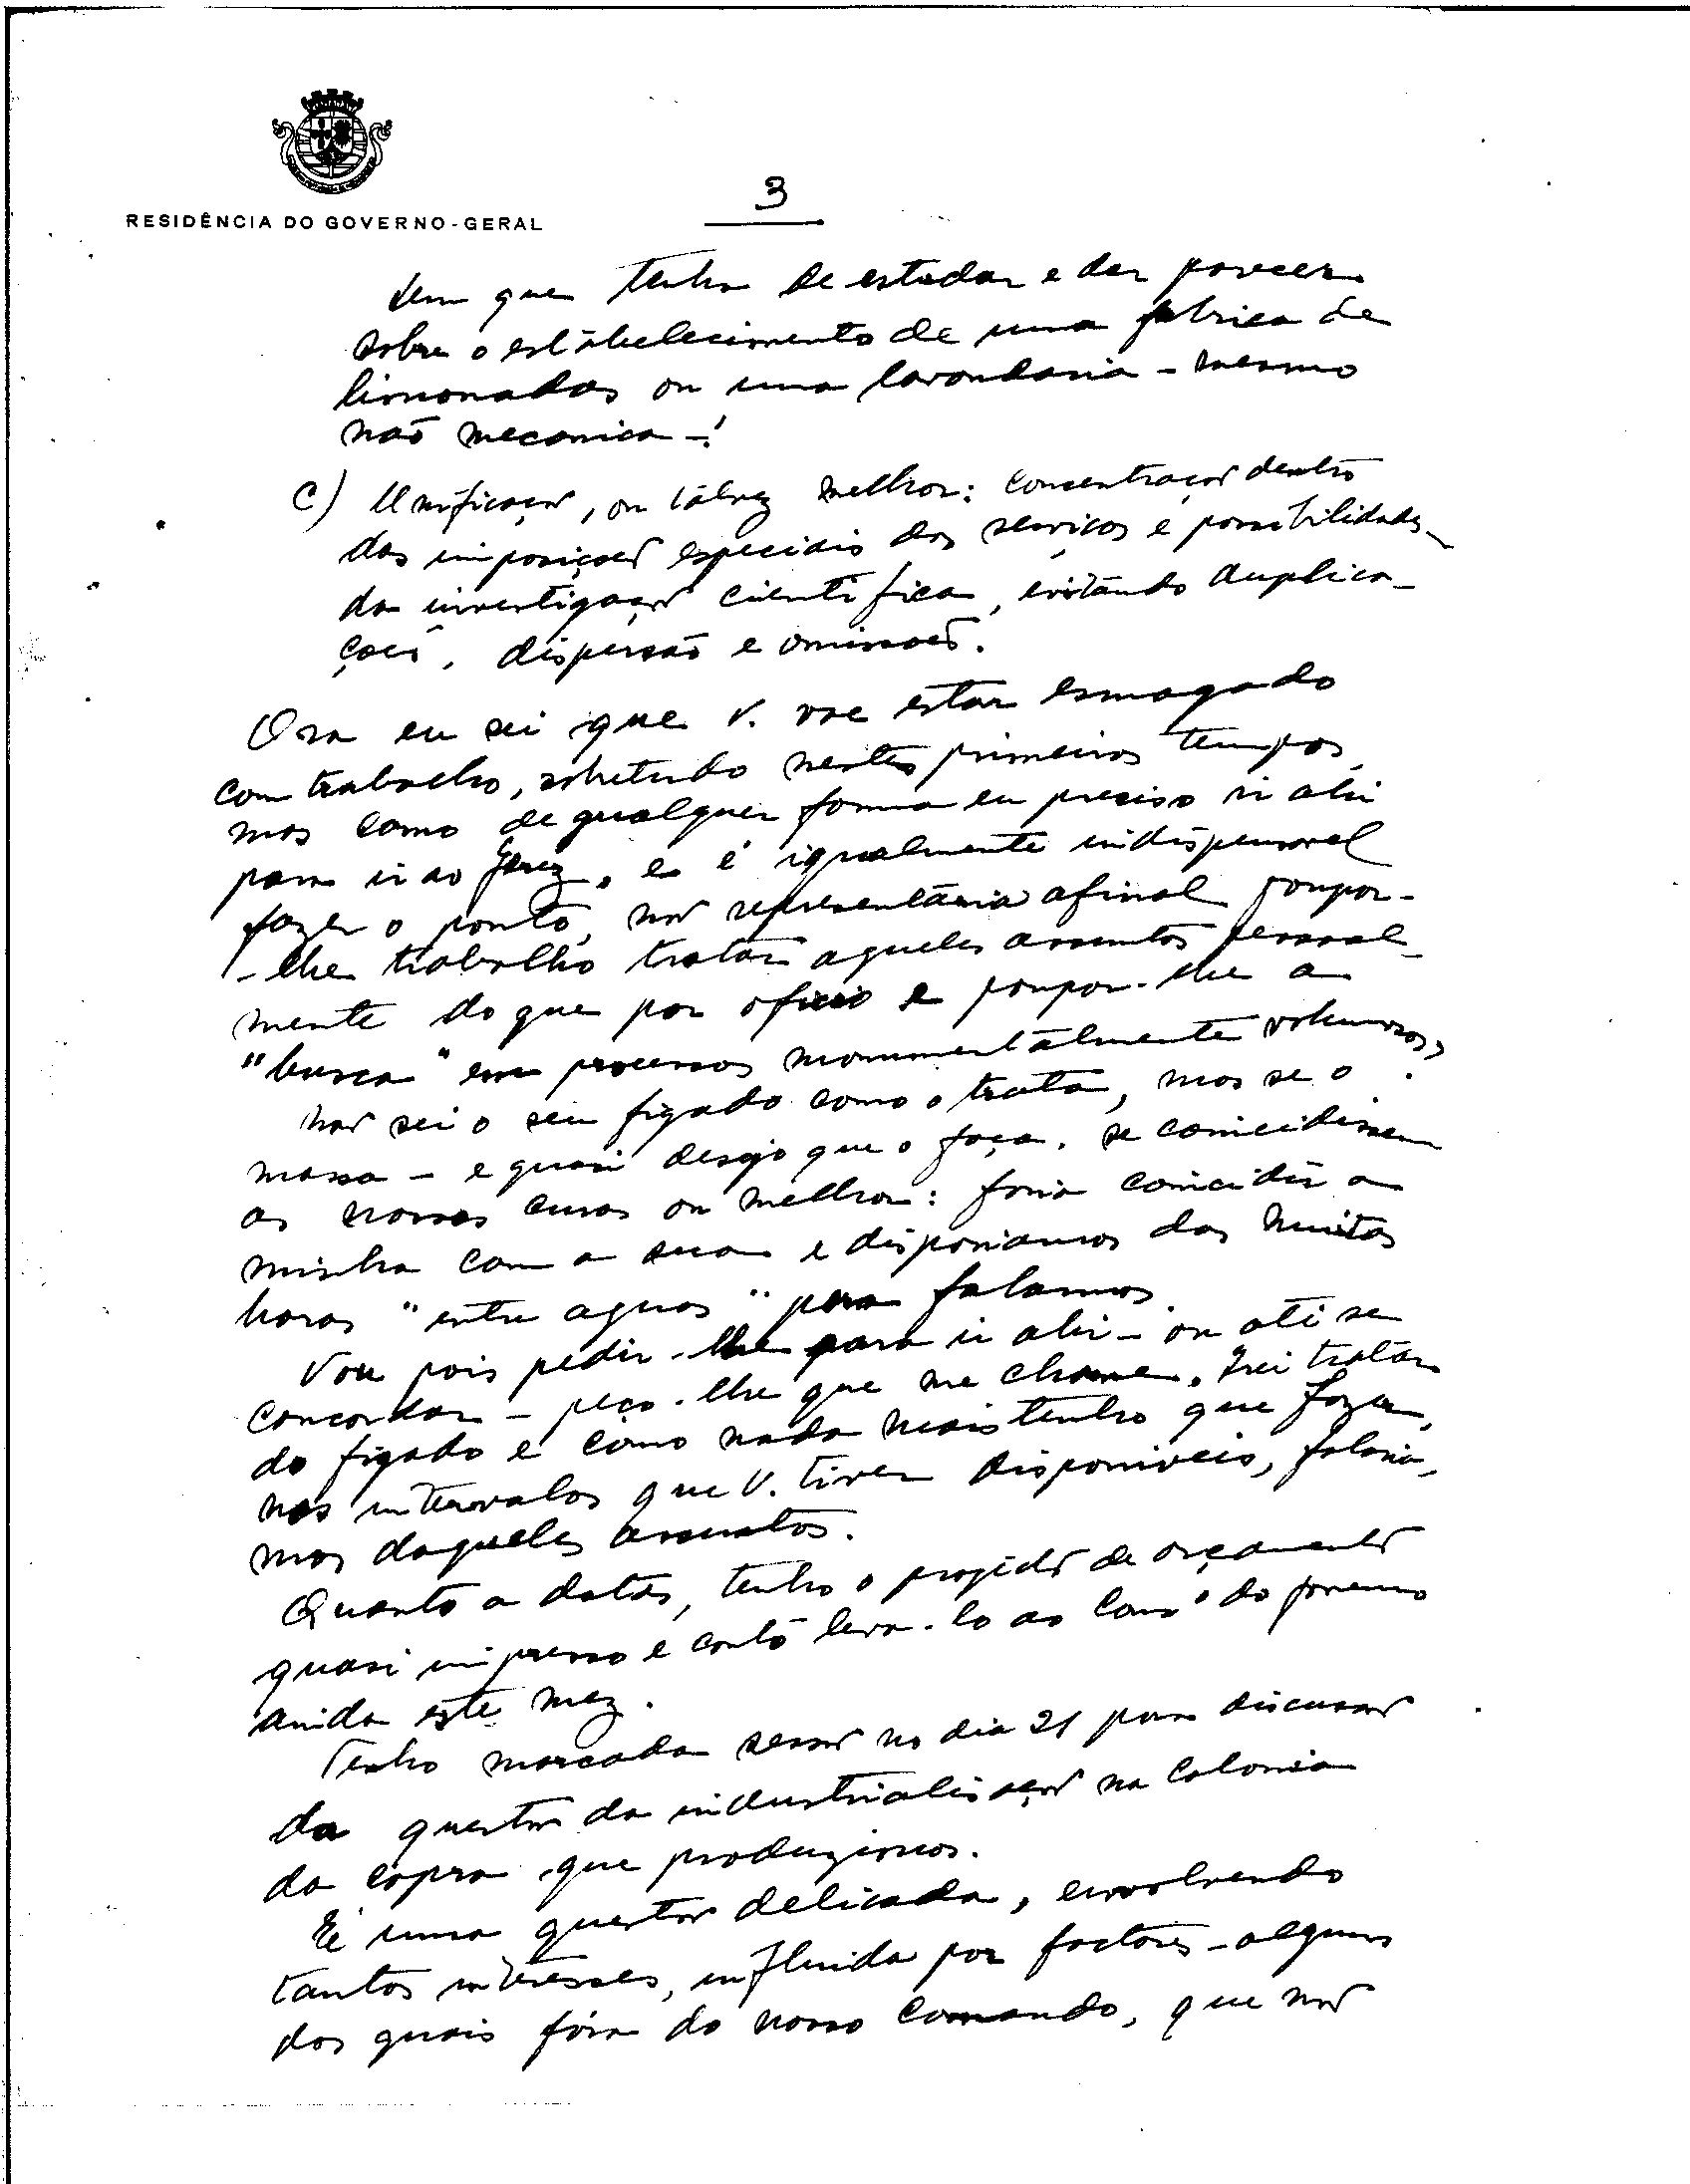 3
RESIDÊNCIA DO GOVERNO-GERAL
sem que tenha de estudar e dar parecer
sobre o estabelecimento de uma fabrica de
limonadas ou uma lavandaria - mesmo
não mecanica -!
C) Unificação, ou talvez melhor: concentração dentro
das imposições especiais dos serviços e possibilidades
da investigação cientifica, evitando duplica-
ções, dispersão e omissões.
Ora eu sei que V. vae estar esmagado
com trabalho, sobretudo nestes primeiros tempos,
mas como de qualquer forma eu preciso ir ahi
para ir ao Gerez, e é igualmente indispensavel
fazer o ponto, não representaria afinal poupar-
-lhe trabalho tratar aqueles assuntos pessoal-
mente do que por oficio e poupar-lhe a
"busca" em processos monumentalmente volumosos?
Não sei o seu figado como o trata, mas se o
massa - e quasi desejo que o faça, se coincidissem
as nossas curas ou melhor: faria coincidir a
minha com a sua e disporiamos das muitas
horas "entre aguas" para falarmos.
Vou pois pedir-lhe para ir ahi - ou até se
concordar - peço-lhe que me chame. Irei tratar
do figado e como nada mais tenho que fazer,
nos intervalos que V. tiver disponiveis, falaria-
mos daqueles assuntos.
Quanto a datas, tenho o projecto de orçamento
quasi impresso e conto leva-lo ao Conso do governo
ainda este mez.
Tenho marcada sessão no dia 21 para discussão
da questão da industrialisação na Colonia
da copra que produzimos.
É uma questão delicada, envolvendo
tantos interesses, influida por factores - alguns
dos quais fóra do nosso comando, que não